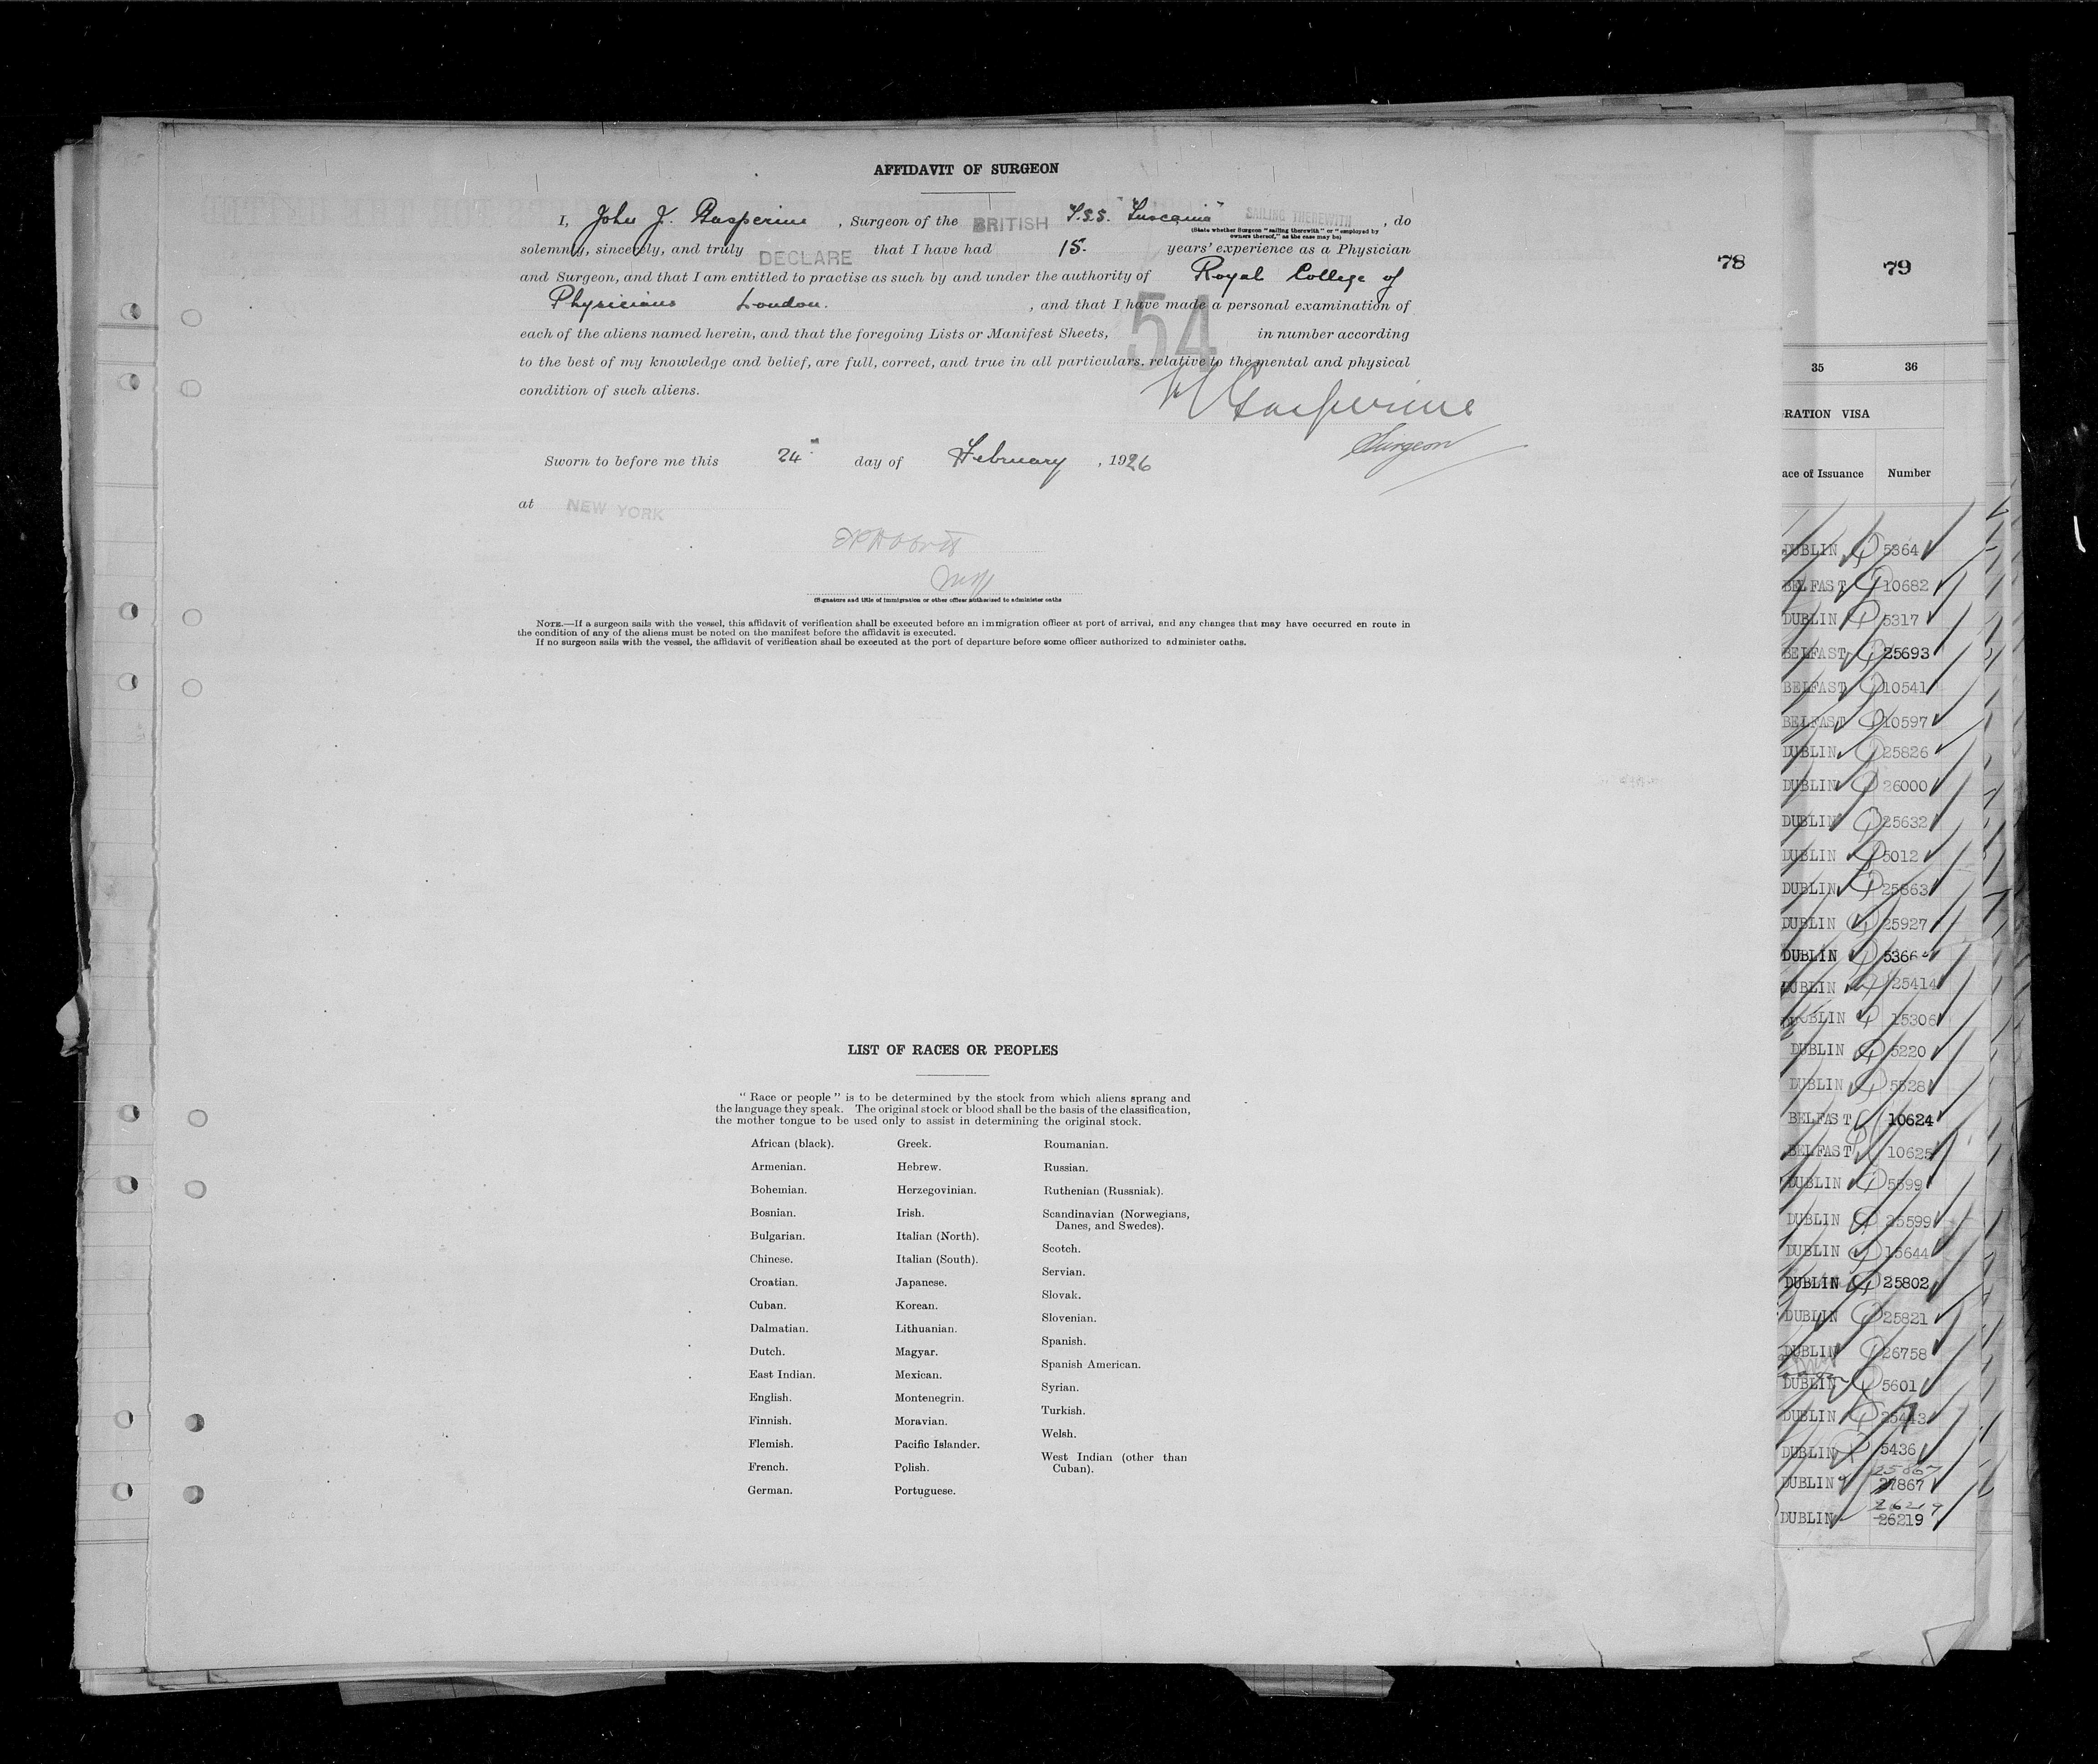 AFFIDAVIT OF SURGEON
I, John J. Gasperine, Surgeon of the BRITISH T.S.S. "Tuscania" SAILING THEREWITH, do
(State whether Surgeon "sailing therewith" or "employed by
owners thereof," as the case may be)
solemnly, sincerely, and truly DECLARE that I have had 15. years' experience as a Physician
and Surgeon, and that I am entitled to practise as such by and under the authority of Royal College of
Physicians London. , and that I have made a personal examination of
each of the aliens named herein, and that the foregoing Lists or Manifest Sheets, 54 in number according
to the best of my knowledge and belief, are full, correct, and true in all particulars. relative to the mental and physical
condition of such aliens.
Gasperine
Surgeon
Sworn to before me this 24" day of February, 1926
at NEW YORK
(Signature and title of immigration or other officer authorized to administer oaths
NOTE.—If a surgeon sails with the vessel, this affidavit of verification shall be executed before an immigration officer at port of arrival, and any changes that may have occurred en route in
the condition of any of the aliens must be noted on the manifest before the affidavit is executed.
If no surgeon sails with the vessel, the affidavit of verification shall be executed at the port of departure before some officer authorized to administer oaths.
LIST OF RACES OR PEOPLES
"Race or people" is to be determined by the stock from which aliens sprang and
the language they speak. The original stock or blood shall be the basis of the classification,
the mother tongue to be used only to assist in determining the original stock.
African (black).
Armenian.
Bohemian.
Bosnian.
Bulgarian.
Chinese.
Croatian.
Cuban.
Dalmatian.
Dutch.
East Indian.
English.
Finnish.
Flemish.
French.
German.
Greek.
Hebrew.
Herzegovinian.
Irish.
Italian (North).
Italian (South).
Japanese.
Korean.
Lithuanian.
Magyar.
Mexican.
Montenegrin.
Moravian.
Pacific Islander.
Polish.
Portuguese.
Roumanian.
Russian.
Ruthenian (Russniak).
Scandinavian (Norwegians,
Danes, and Swedes).
Scotch.
Servian.
Slovak.
Slovenian.
Spanish.
Spanish American.
Syrian.
Turkish.
Welsh.
West Indian (other than
Cuban).
78
79
35 36
RATION VISA
ace of Issuance Number
DUBLIN 5364
BELFAST 10682
DUBLIN 5317
BELFAST 25693
BELFAST 10541
BELFAST 10597
DUBLIN 25826
DUBLIN 26000
DUBLIN 25632
DUBLIN 5012
DUBLIN 25863
DUBLIN 25927
DUBLIN 5366
DUBLIN 25414
DUBLIN 15306
DUBLIN 5220
DUBLIN 5528
BELFAST 10624
BELFAST 10625
DUBLIN 5599
DUBLIN 25599
DUBLIN 15644
DUBLIN 25802
DUBLIN 25821
DUBLIN 26758
DUBLIN 5601
DUBLIN 25443
DUBLIN 5436
25867
DUBLIN 27867
26219
DUBLIN 26219